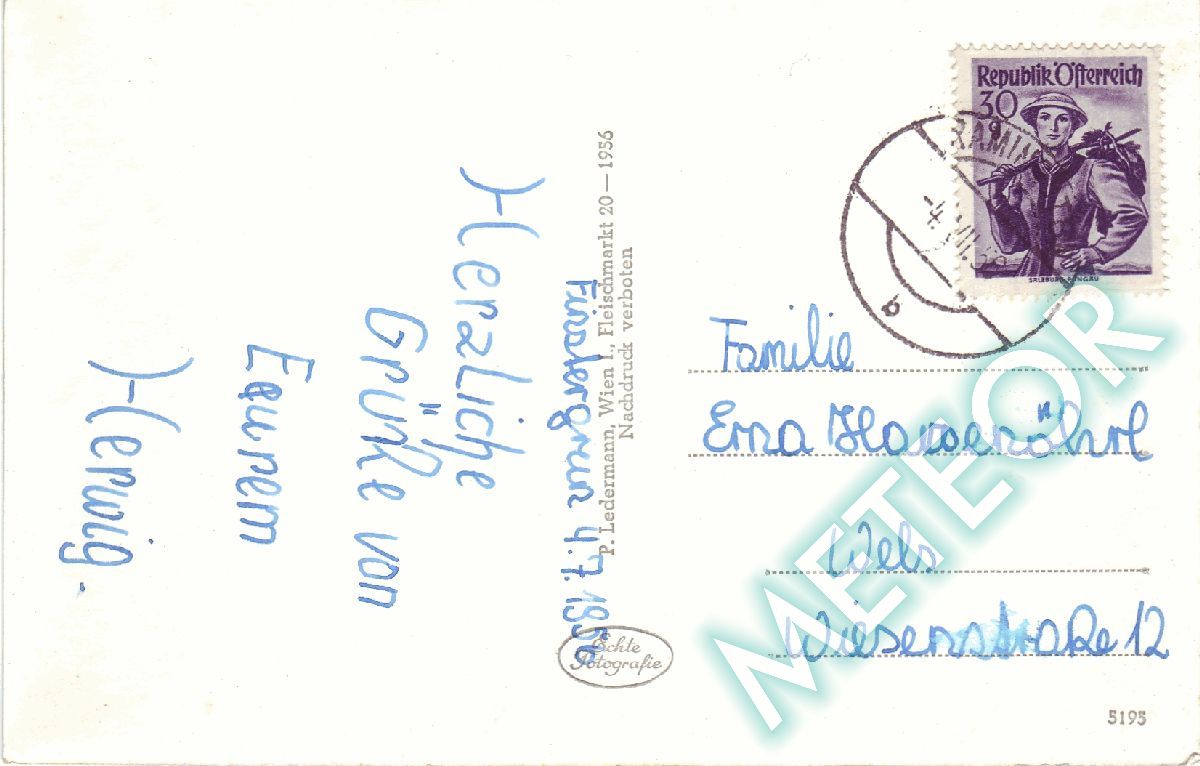 Finstergrün 4.7.1956
Herzliche
Grüße von
Eurem
Herwig.
P. Ledermann, Wien I., Fleischmarkt 20 — 1956
Nachdruck verboten
Echte
Fotografie
Republik Österreich
30
SALZBURG, PONGAU
RAMIN
b
Familie
Erna
Wels
Wiesenstraße 12
5195
METEOR